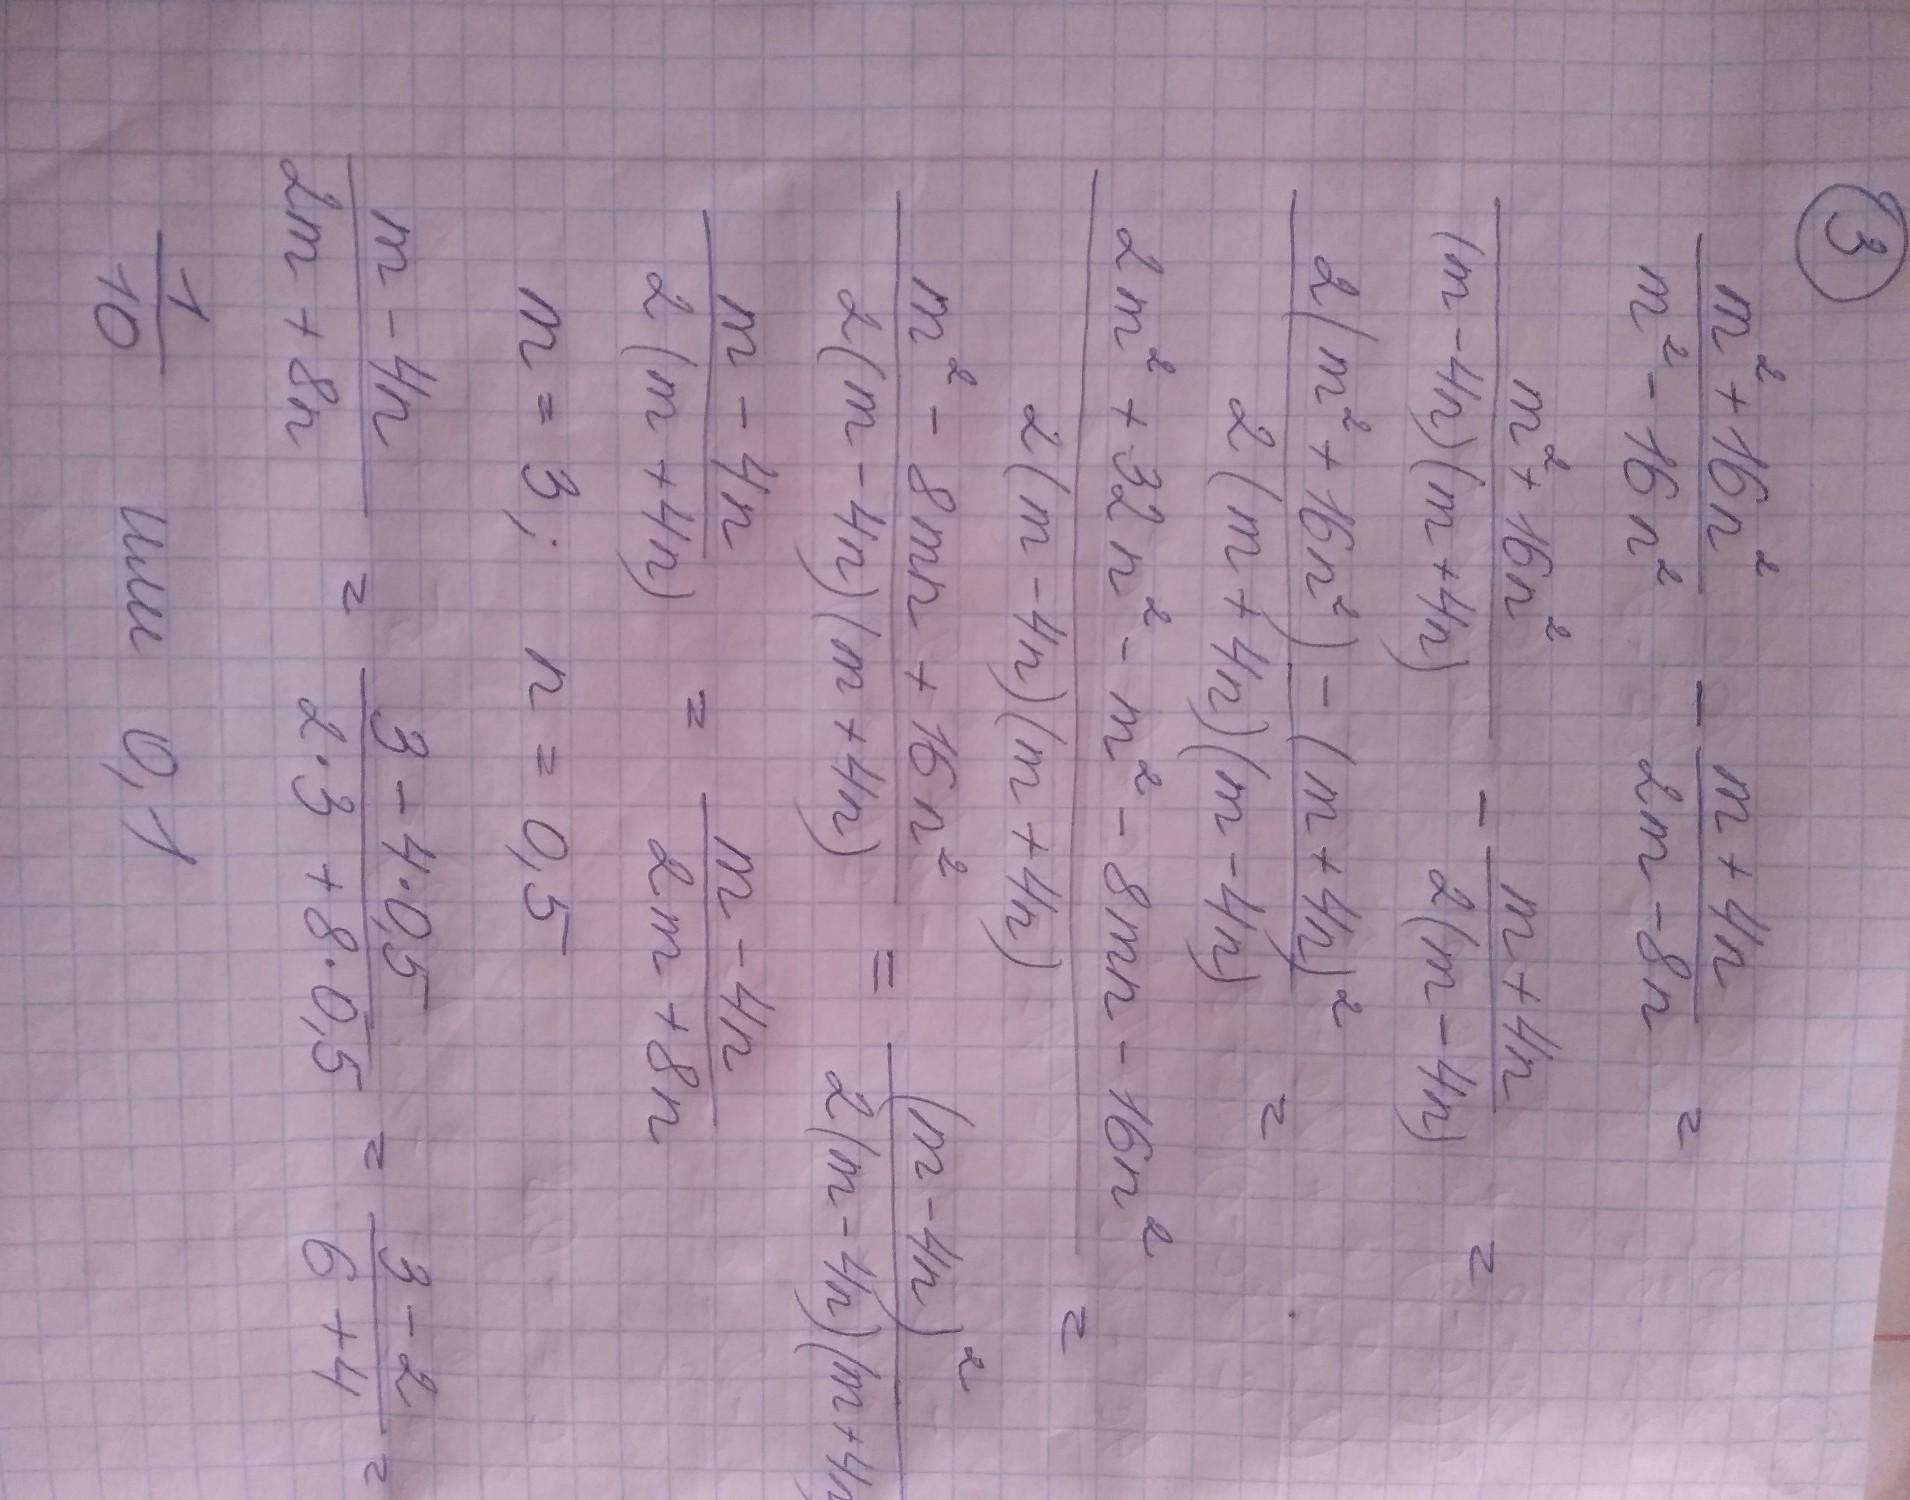 3
(m² + 16n²)/(m² - 16n²) - (m + 4n)/(2m - 8n) =
(m² + 16n²)/((m - 4n)(m + 4n)) - (m + 4n)/(2(m - 4n)) =
(2(m² + 16n²) - (m + 4n)²)/(2(m + 4n)(m - 4n)) =
(2m² + 32n² - m² - 8mn - 16n²)/(2(m - 4n)(m + 4n)) =
(m² - 8mn + 16n²)/(2(m - 4n)(m + 4n)) = (m - 4n)²/(2(m - 4n)(m + 4n
(m - 4n)/(2(m + 4n)) = (m - 4n)/(2m + 8n)
m = 3; n = 0,5
(m - 4n)/(2m + 8n) = (3 - 4·0,5)/(2·3 + 8·0,5) = (3 - 2)/(6 + 4) =
1/10 или 0,1